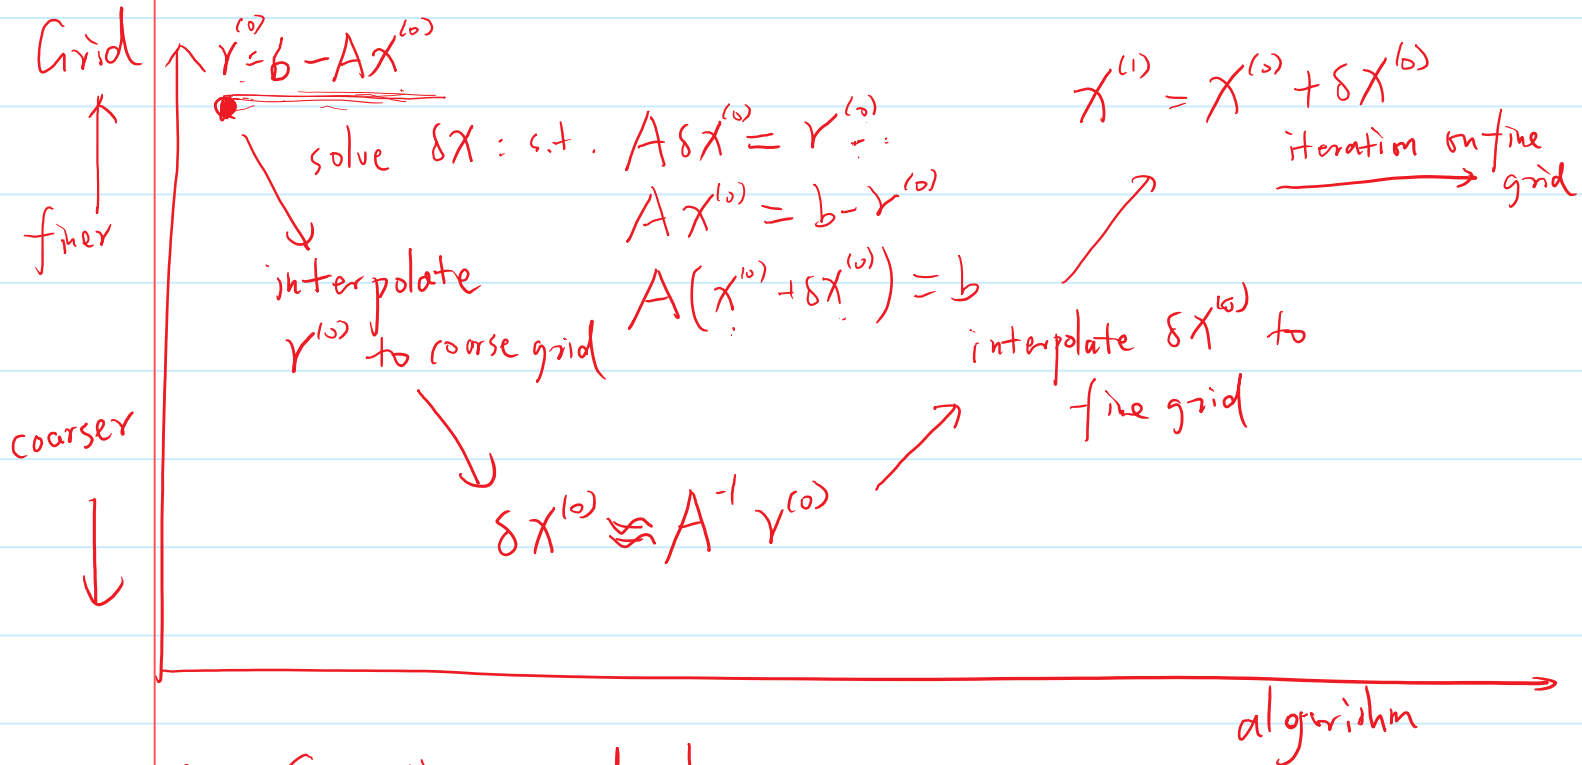 Grid
r^(0) = b - Ax^(0)
finer
coarser
solve δx : s.t. Aδx^(0) = r^(0)
Ax^(0) = b - r^(0)
A(x^(0) + δx^(0)) = b
interpolate
r^(0) to coarse grid
δx^(0) ≈ A^-1 r^(0)
interpolate δx^(0) to
fine grid
x^(1) = x^(0) + δx^(0)
iteration on fine
grid
algorithm